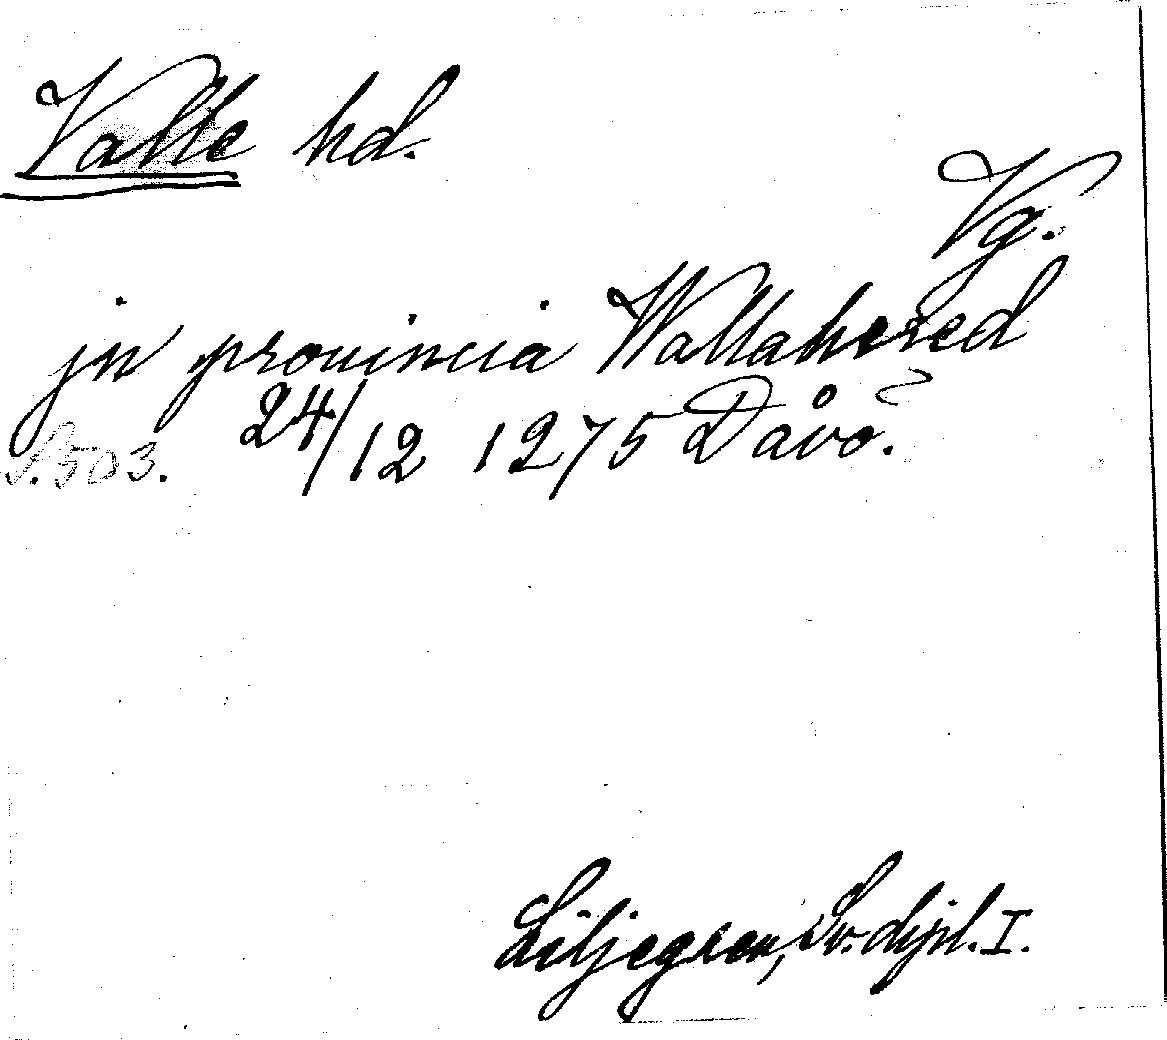 Valle hd.
Vg.
jn provincia Wallahered
S. 503. 24/12 1275 Dåvö.
Liljegren, Sv. dipl. I.